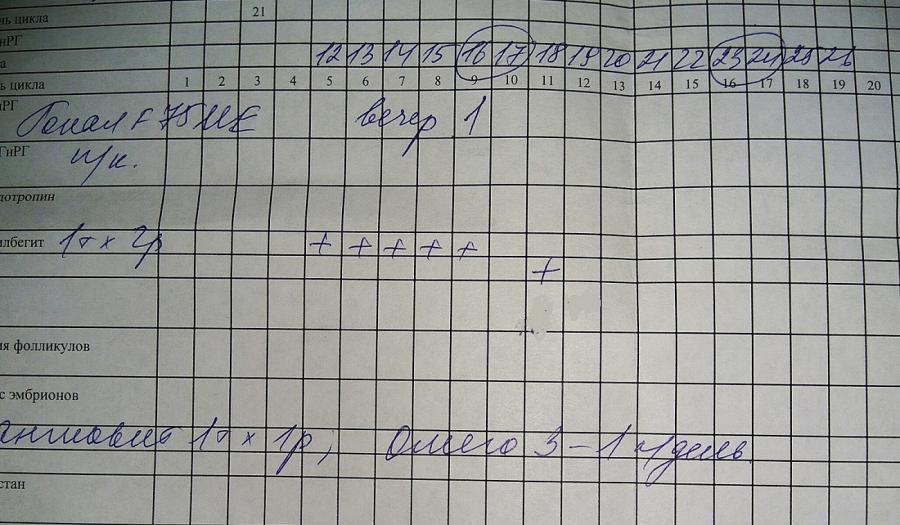 нь цикла 21
нРГ
а 12 13 14 15 16 17 18 19 20 21 22 23 24 25 26
ь цикла 1 2 3 4 5 6 7 8 9 10 11 12 13 14 15 16 17 18 19 20
нРГ Гонал F 75 МЕ вечер 1
ГнРГ п/к.
дотропин
илбегит 1т x 2р + + + + +
+
ия фолликулов
с эмбрионов
ангиовит 1т x 1р, Омега 3 - 1 т/день
стан